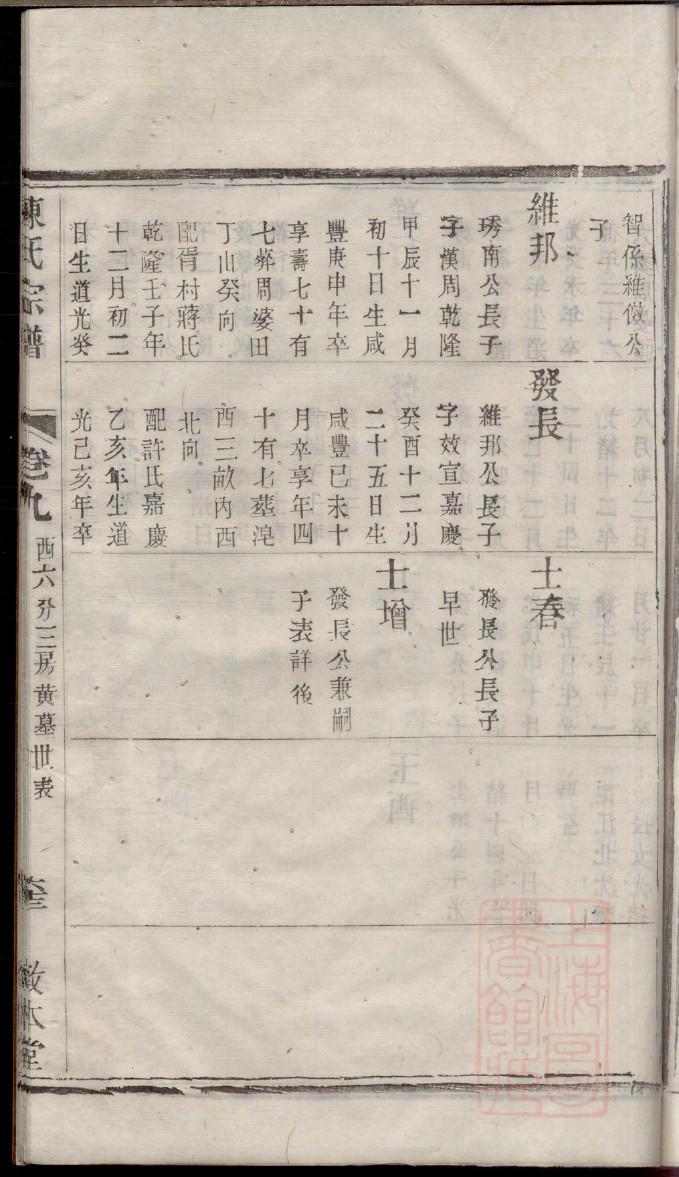 智係維儆公
子
維邦
琇南公長子
字漢周乾隆
甲辰十一月
初十日生咸
豐庚申年卒
享壽七十有
七葬周婆田
丁山癸向
配胥村蔣氏
乾隆壬子年
十二月初二
日生道光癸
發長
維邦公長子
字效宣嘉慶
癸酉十二月
二十五日生
咸豐己未十
月卒享年四
十有七葬湟
西三畝內西
北向
配許氏嘉慶
乙亥年生道
光己亥年卒
士春
發長公長子
早世
士增
發長公兼嗣
子表詳後
陳氏宗譜
卷九
西六分三房黃墓世表
敬本堂
上海圖書館藏